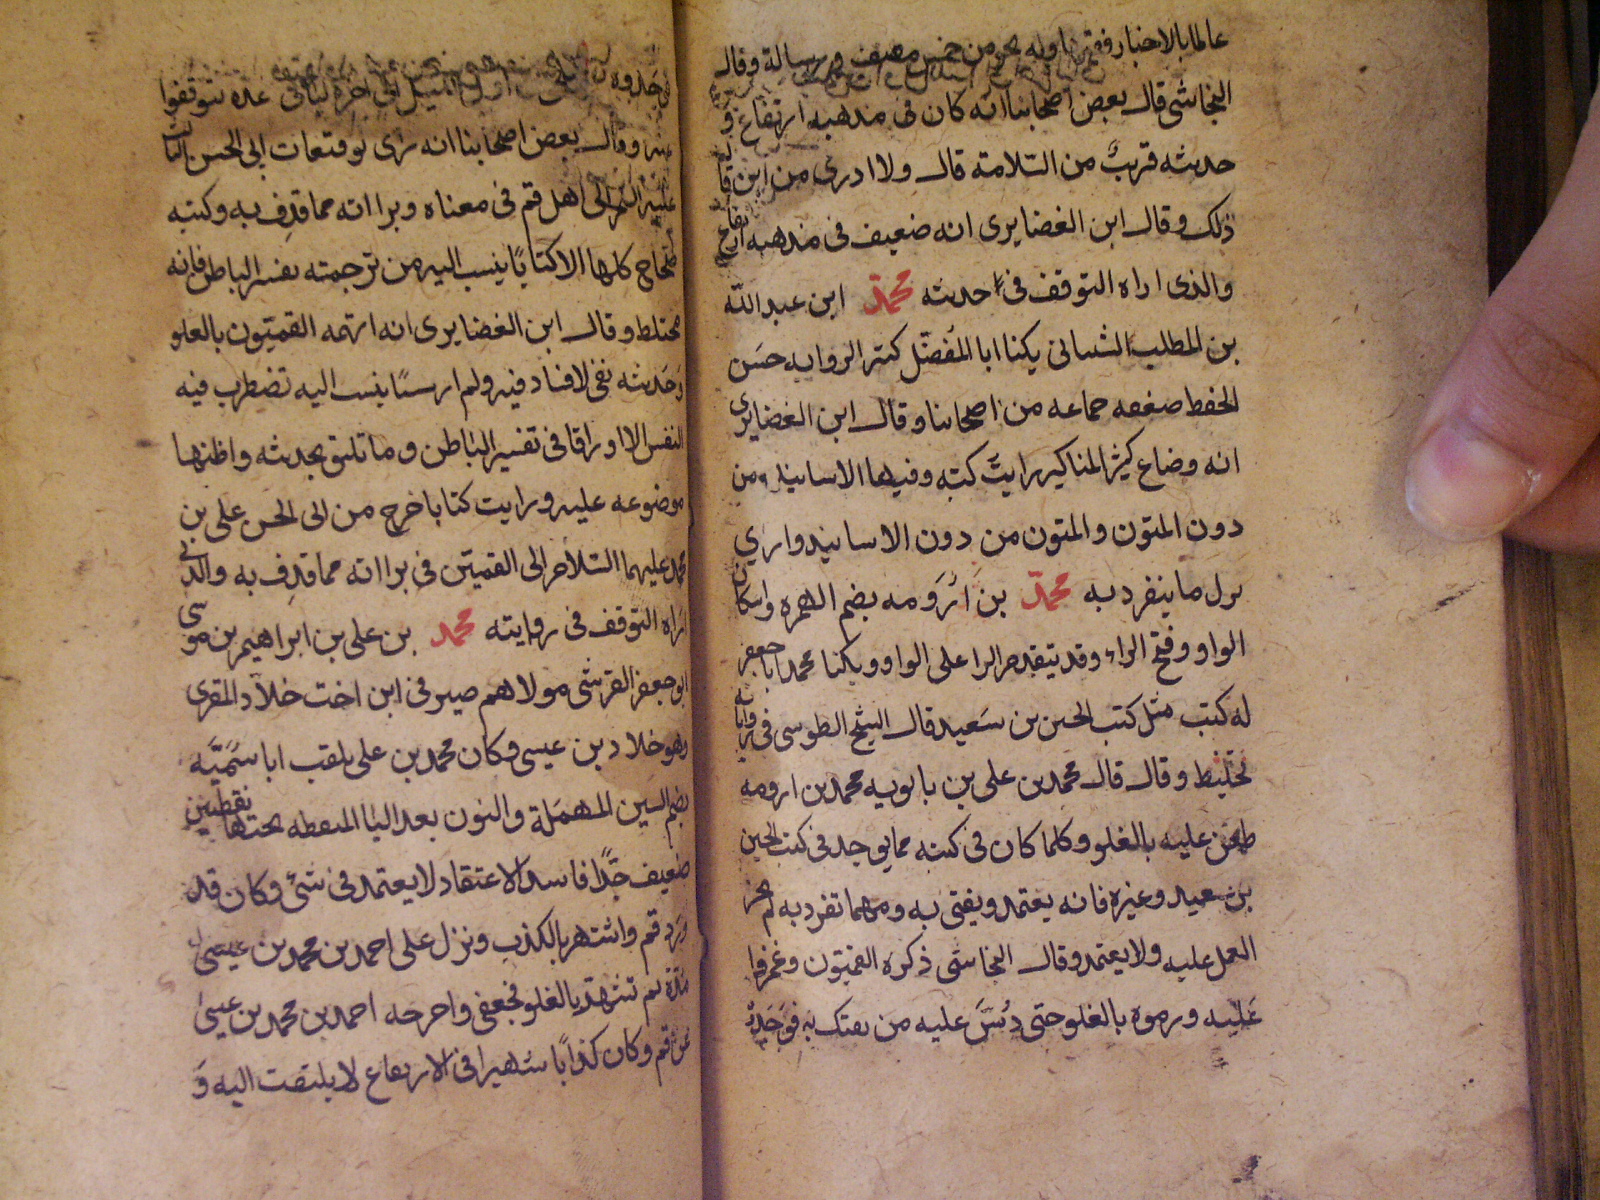 عالما بالاخبار فقيها وله نحو من خمسين مصنف ورسالة وقال
النجاشى قال بعض اصحابنا انه كان فى مذهبه ارتفاع و
حديثه قريبٌ من السلامة قال ولا ادرى من اين قا
ذلك وقال ابن الغضايرى انه ضعيف فى مذهبه ارتفاع
والذى اراه التوقف فى حديثه محمّد ابن عبد اللّه
بن المطلب الشيبانى يكنا ابا المُفضّل كثير الروايه حسَن
الحفظ ضعفه جماعه من اصحابنا وقال ابن الغضايرى
انه وضاع كثير المناكير رايتَ كتبه وفيها الاسانيد من
دون المتون والمتون من دون الاسانيد وارى
ترك ما ينفرد به محمّد بن اُرُومه بضم الهمزه واسكان
الواو وفتح الراء وقد يتقدم الرا على الواو ويكنا محمد ابا جعفر
له كتب مثل كتب الحسين بن سَعيد قال الشيخ الطوسى فى رواياته
تخليط وقال قال محمد بن على بن بابويه محمد بن ارومه
طعن عليه بالغلو وكلما كان فى كتبه مما يوجد فى كتب الحسين
بن سعيد وغيره فانه يعتمد ويفتى به ومهما تفرد به لم يجز
العمل عليه ولا يعتمد وقال النجاشى ذكره القميّون وغمزوا
عَليه ورموه بالغلو حتى دُسّ عليه من يفتك به فوَجَدوه
فوجَدوه اول الليل الى اخره ليالى عدة فتوقفوا
عنه وقال بعض اصحابنا انه راى توقيعات ابى الحسن الثالث
عليه السلم الى اهل قم فى معناه وبراائه مما قُذِف به وكتبه
صحاح كلها الا كتابًا ينسب اليه من ترجمته تفسير الباطن فإنه
مختلط وقال ابن الغضايرى انه اتهمه القميّون بالغلو
وَحَديثه نقى لا فساد فيه ولم ار شيئًا ينسب اليه تضطرب فيه
النفس الا اوراقا فى تفسير الباطن وما تليق بحديثه واظنها
موضوعه عليه ورايت كتابا خرج من الى الحسن على بن
محمد عليهما السّلام الى القميّين فى براائه مما قُذِف به والذى
اراه التوقف فى روايته محمّد بن على بن ابراهيم بن موسى
ابو جعفر القرشى مولاهم صيرفى ابن اخت خلاّد المقرى
وهو خلاد بن عيسى وكان محمد بن على يلقب ابا سُمَيّنه
بضم السين المهمَلة والنون بعد اليا المنقطه تحتها نقطتين
ضعيف جدًّا فاسد الاعتقاد لا يعتمد فى شئ وكان قد
ورَد قم واشتهر بالكذب ونزل على احمد بن محمد بن عيسى
مدّة ثم تشهّد بالغلو فجفى واخرجه احمد بن محمد بن عيسى
عن قم وكان كذّابًا شهيرا فى الارتفاع لا يلتفت اليه وَ